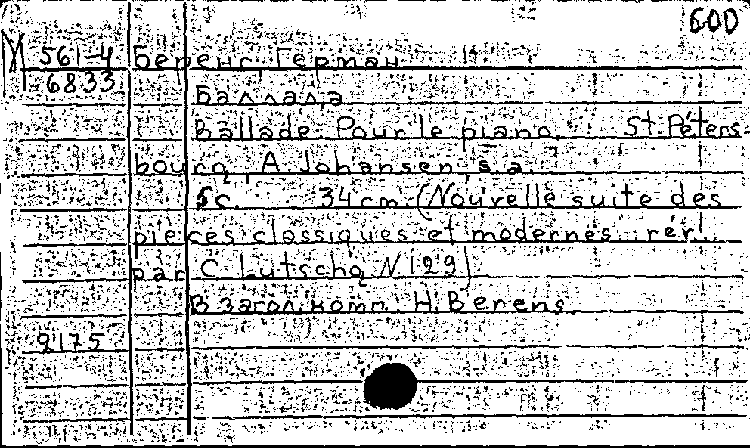 600
М 561-4 Беренс, Герман
6833
Баллада
Ballade. Pour le piano. St. Péters
bourg, A. Johansen, s.a.
5c. 34cm. (Nouvelle suite des
pièces classiques et modernes, rér.
par C. Lutscha N 129)
В загол. комп. H. Berens
9175